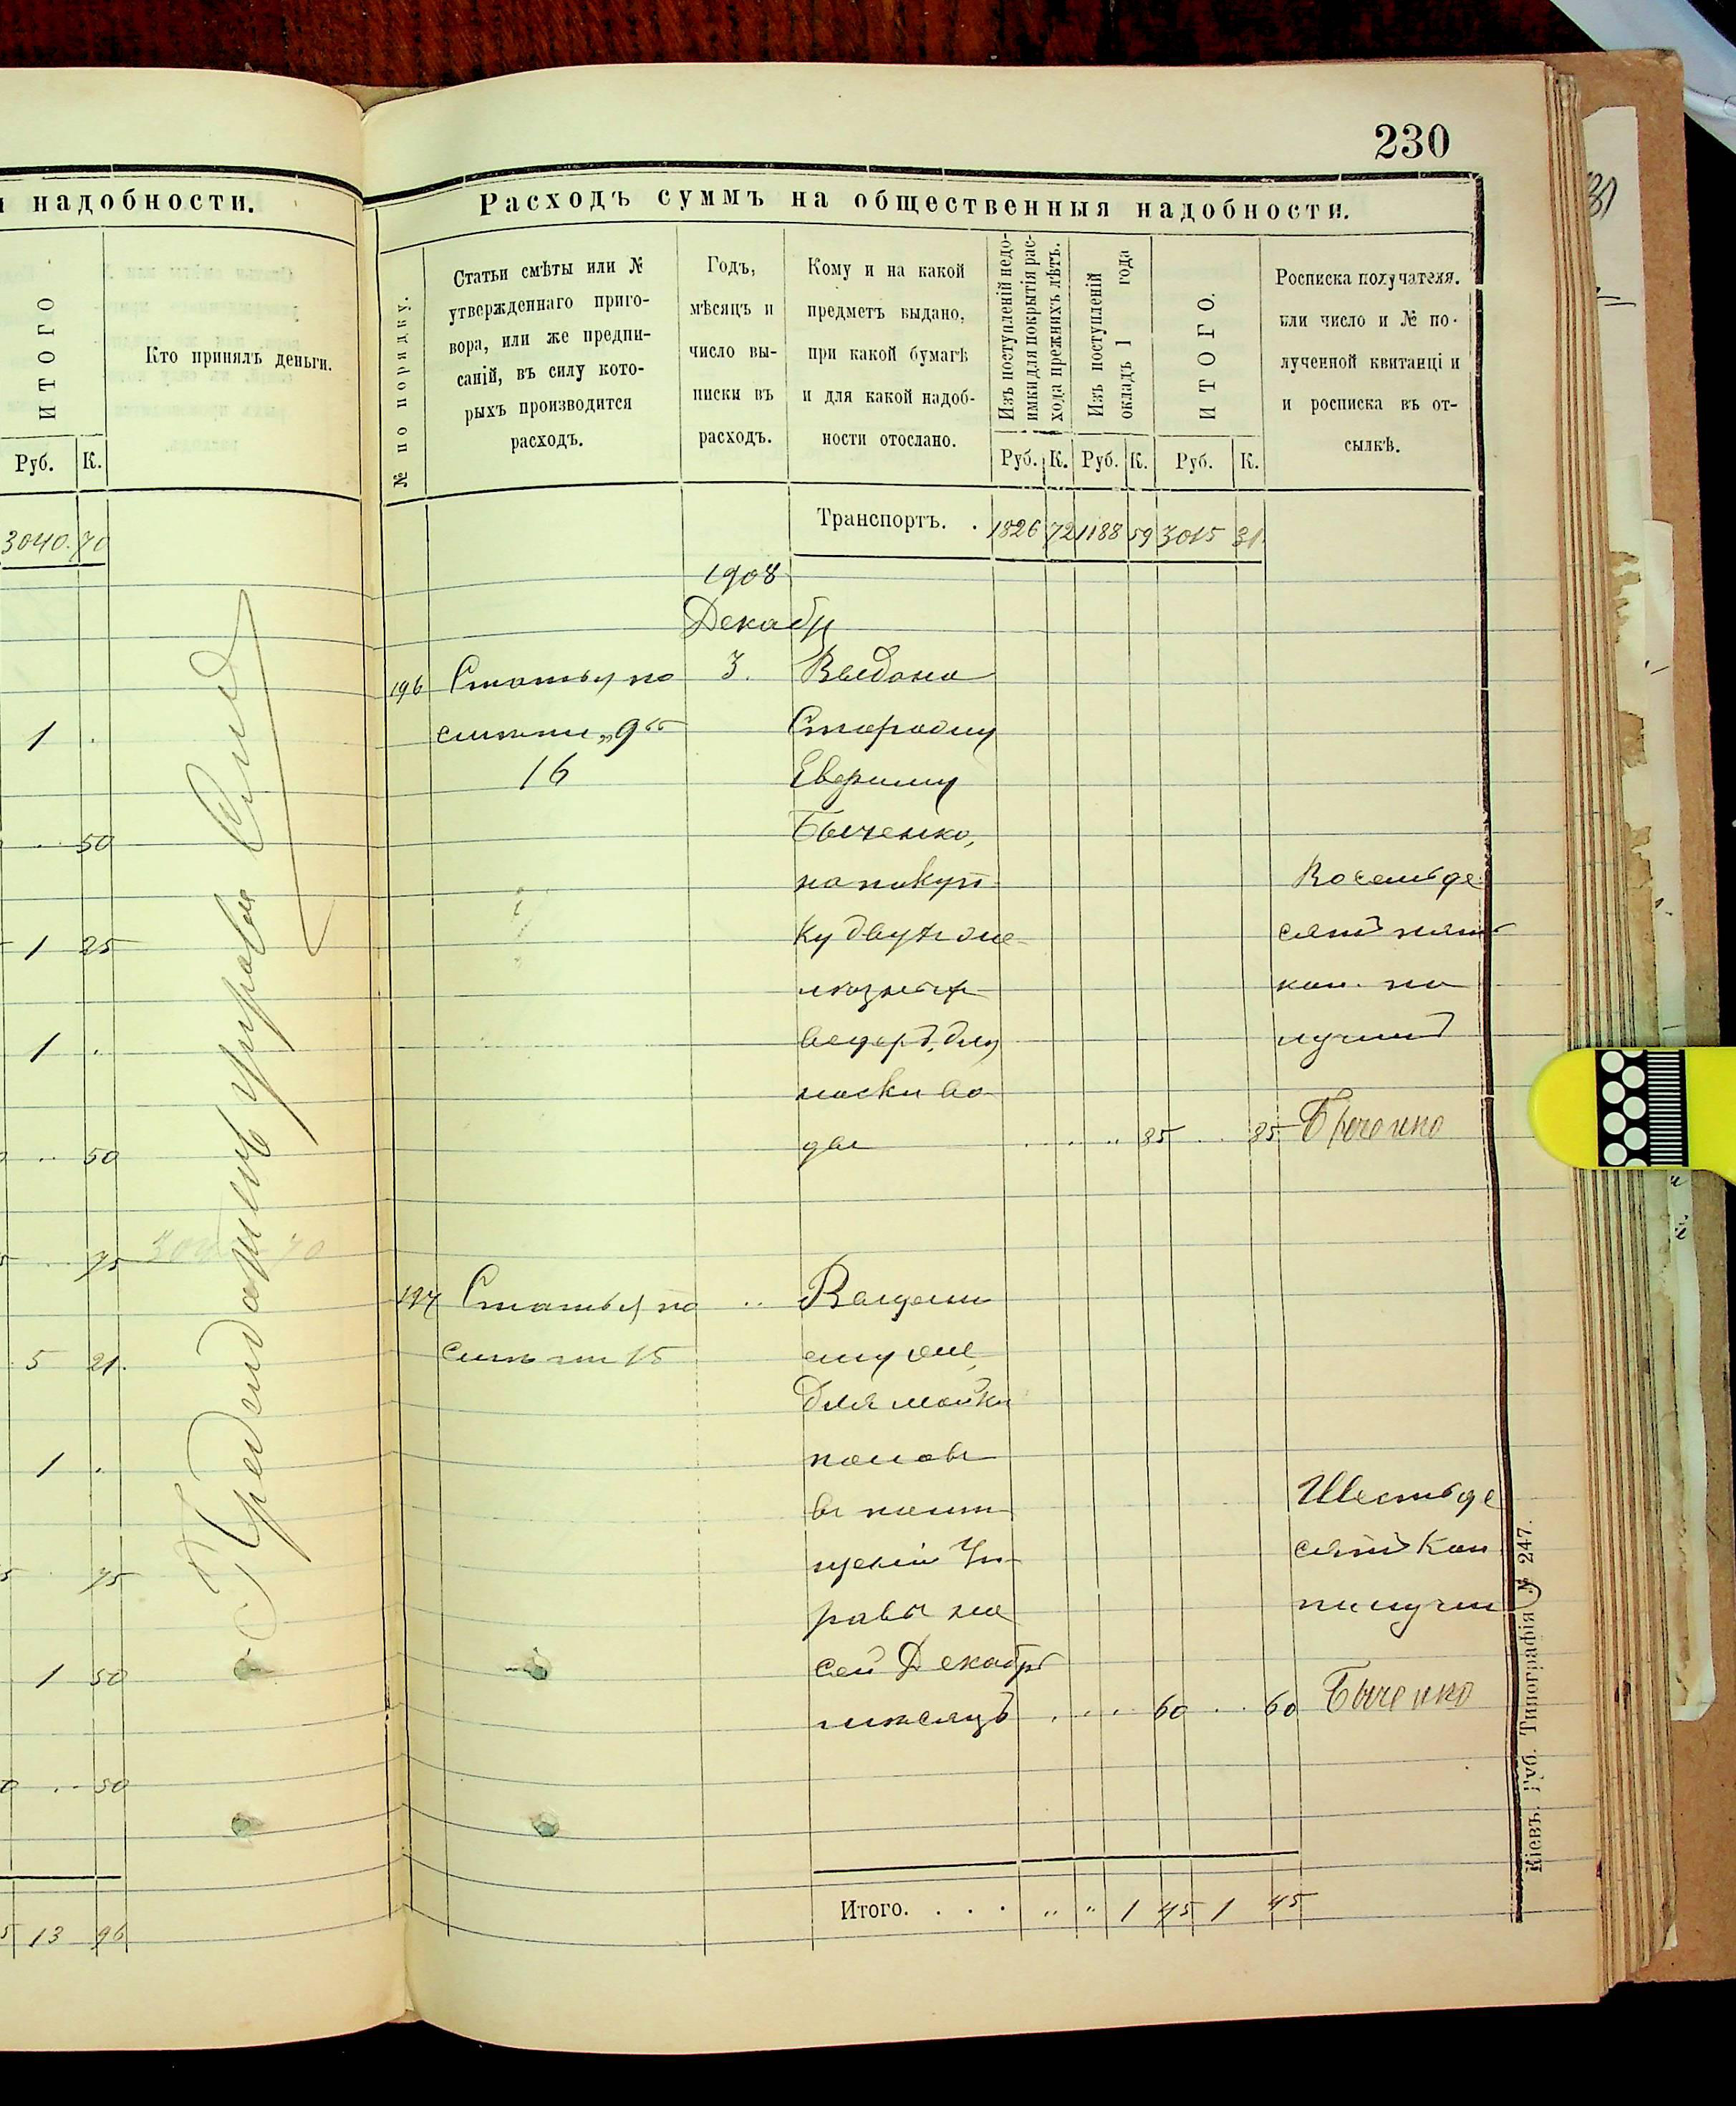 230
надобности.
ИТОГО
Кто принялъ деньги.
Руб. К.
3040. 70
1 .
50
1 25
1 .
50
75
5 21.
1 .
75
1 50
50
13 96
Расходъ суммъ на общественныя надобности.
№ по порядку.
Статьи смѣты или №
утвержденнаго приго-
вора, или же предпи-
саній, въ силу кото-
рыхъ производится
расходъ.
Годъ,
мѣсяцъ и
число вы-
писки въ
расходъ.
Кому и на какой
предметъ выдано,
при какой бумагѣ
и для какой надоб-
ности отослано.
Изъ поступленій недо-
имки для покрытія рас-
хода прежнихъ лѣтъ.
Изъ поступленій
окладъ 1 года
ИТОГО.
Росписка получателя.
или число и № по-
лученной квитанціи
и росписка въ от-
сылкѣ.
Руб. К. Руб. К. Руб. К.
Транспортъ. . 1826 72 1188 59 3015 31.
1908
Декабр
196 Статья по 3. Выдано
смѣти „9“ Сторожу
16 Евфиму
Быченко,
на покуп-
ку двухъ же-
лѣзныхъ
ведеръ, для
носки во-
ды .. 85 .. 85
Восемьде
сятъ пять
коп. по
лучилъ
Быченко
197 Статья по .. Выдани
смѣти 15 ему же,
для мойки
половъ
въ помѣ
щеніи Уп-
равы за
сей Декабрь
мѣсяцъ .... 60 .. 60
Шестьде
сятъ коп
получил
Быченко
Итого. . . . „ „ 1 45 1 45
Кіевъ. Губ. Типографія № 247.